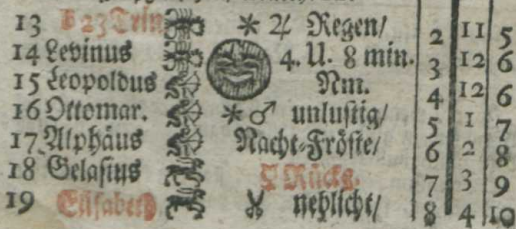 13 B 23 Trin ⚹ ♃ Regen/ 2 11 5
14 Levinus 4. U. 8 min. 3 12 6
15 Leopoldus Nm. 4 12 6
16 Ottomar. ⚹ ♂ unlustig/ 5 1 7
17 Alphäus Nacht-Fröste/ 6 2 8
18 Gelasius Rückg. 7 3 9
19 Elisabeth neblicht/ 8 4 10